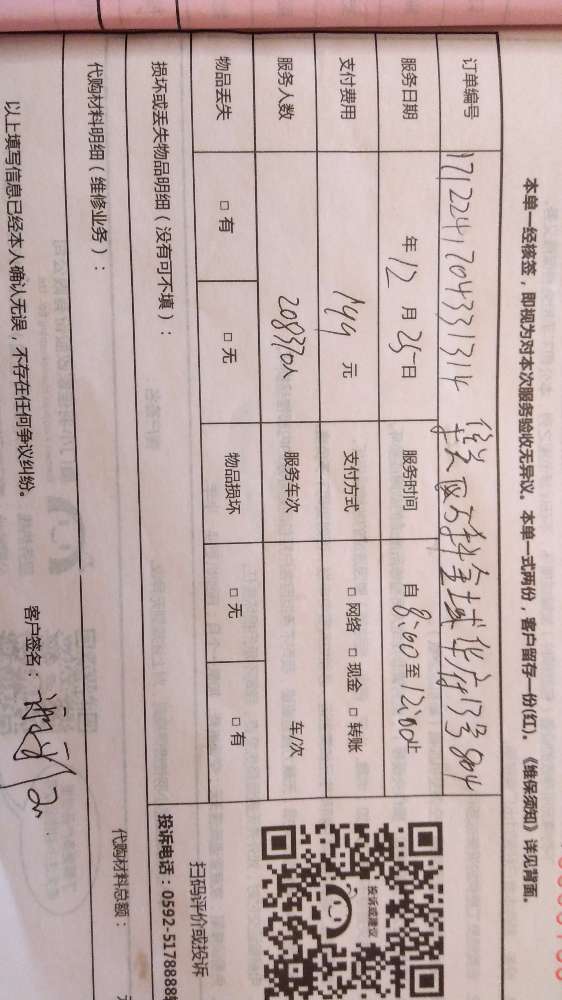 本单一经核签，即视为对本次服务验收无异议。本单一式两份，客户留存一份(红)。《维保须知》详见背面。
订单编号 171224120433131
服务日期 年 12 月 25 日 服务时间 自 8:00 至 12:00 止
支付费用 149 元 支付方式 □ 网络 □ 现金 □ 转账
服务人数 208370 人 服务车次 车/次
物品丢失 □ 有 □ 无 物品损坏 □ 无 □ 有
损坏或丢失物品明细（没有可不填）：
投诉或建议
扫码评价或投诉
投诉电话：0592-5178888
代购材料明细（维修业务）：
代购材料总额：
以上填写信息已经本人确认无误，不存在任何争议纠纷。
客户签名：